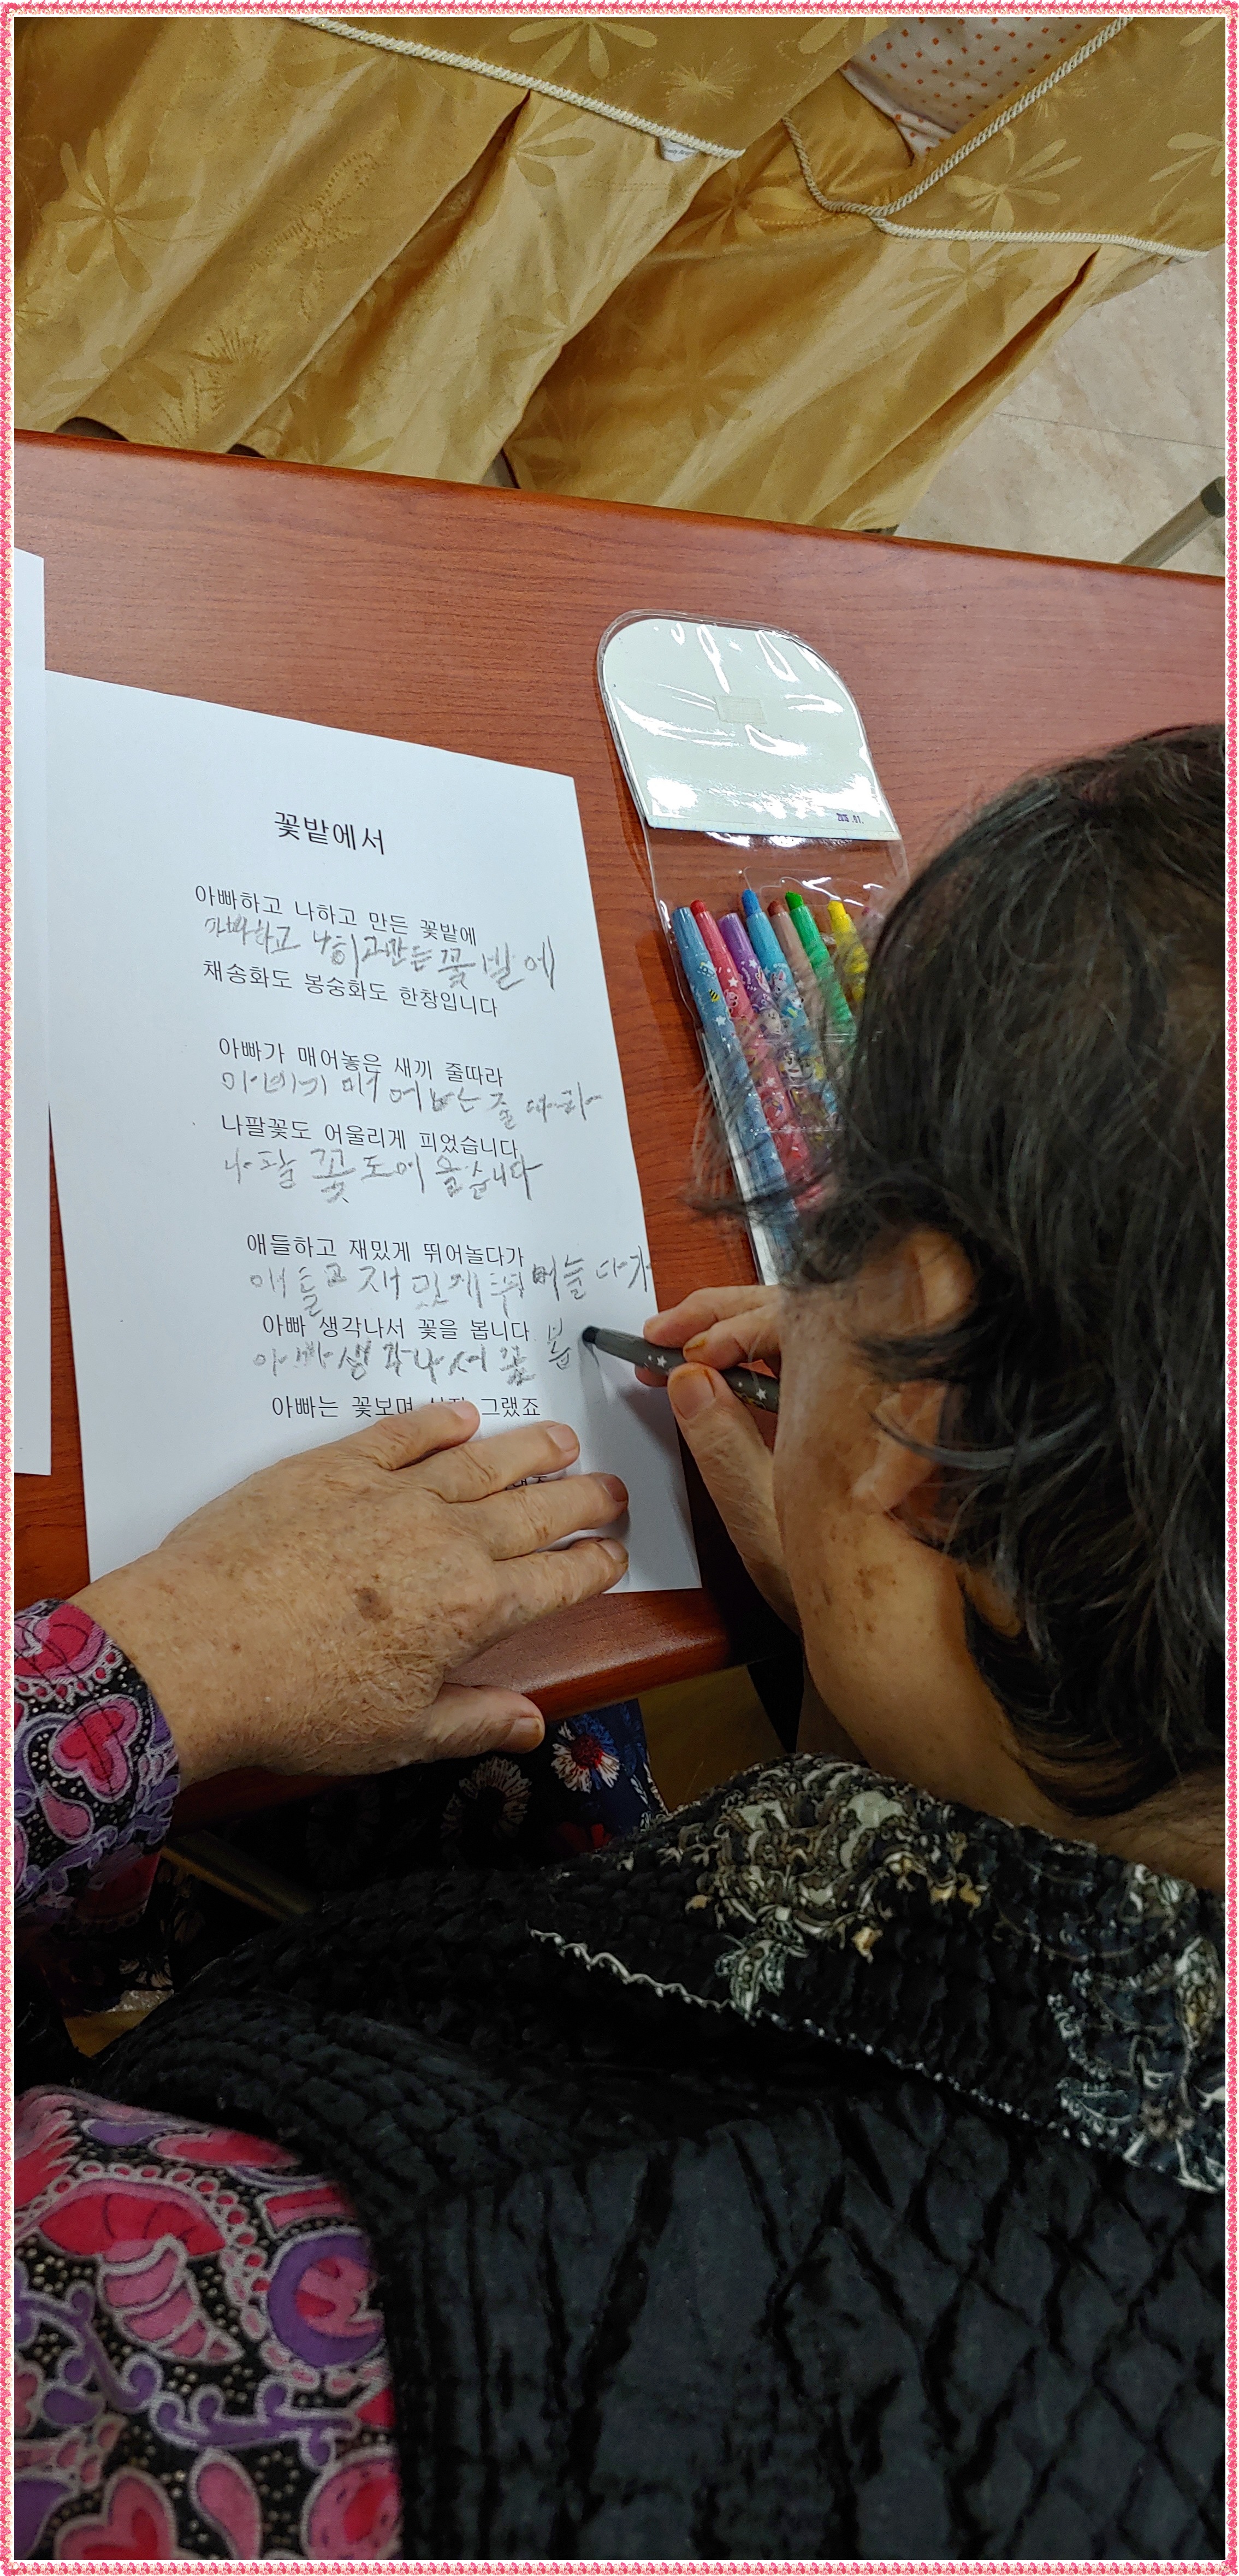 꽃밭에서
아빠하고 나하고 만든 꽃밭에
아빠하고 나히고만든 꽃밭에
채송화도 봉숭화도 한창입니다
아빠가 매어놓은 새끼 줄따라
줄
나팔꽃도 어울리게 피었습니다
나팔 꽃도어 울습니다
애들하고 재밌게 뛰어놀다가
애들고 재밌게
아빠 생각나서 꽃을 봅니다 봅
아빠생각나서 꽃
아빠는 꽃보며 그랬죠